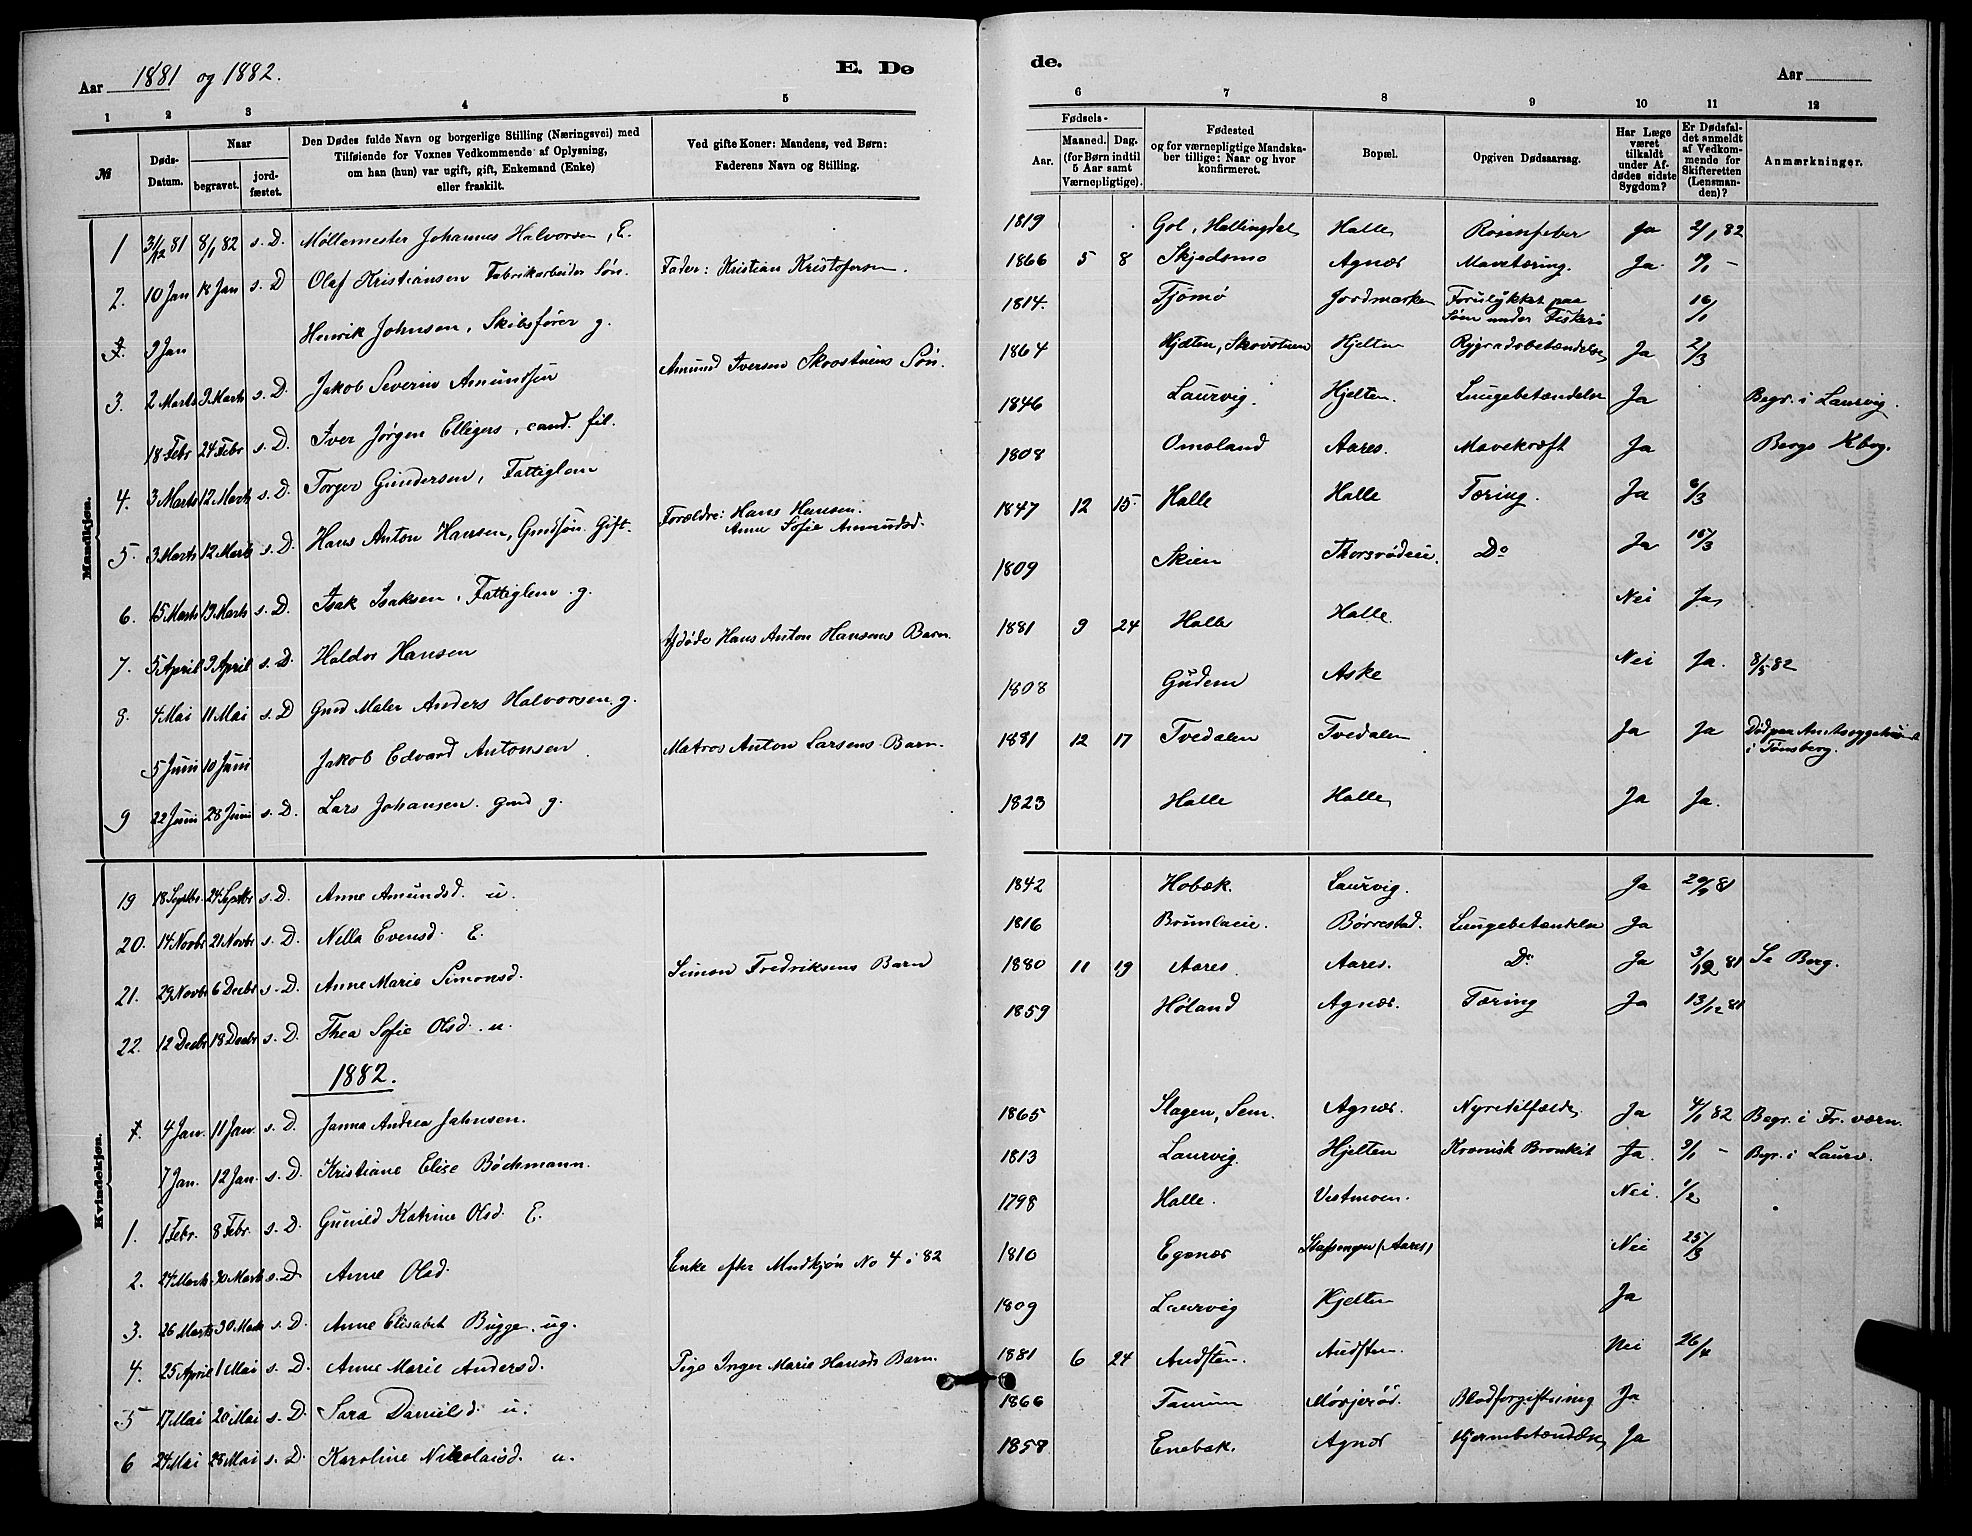 Aar 1881 og 1882.
E. Dø
de.
Aar
1 2 3 4 5 6 7 8 9 10 11 12
№
Døds-Datum.
Naar
begravet.
jord-fæstet.
Den Dødes fulde Navn og borgerlige Stilling (Næringsvei) med
Tilføiende for Voxnes Vedkommende af Oplysning,
om han (hun) var ugift, gift, Enkemand (Enke)
eller fraskilt.
Ved gifte Koner: Mandens, ved Børn:
Faderens Navn og Stilling.
Fødsels-
Aar.
Maaned. Dag.
(for Børn indtil
5 Aar samt
Værnepligtige).
Fødested
og for værnepligtige Mandska-
ber tillige: Naar og hvor
konfirmeret.
Bopæl.
Opgiven Dødsaarsag.
Har Læge
været
tilkaldt
under Af-
dødes sidste
Sygdom?
Er Dødsfal-
det anmeldt
af Vedkom-
mende for
Skifteretten
(Lensman-
den)?
Anmærkninger.
Mandkjøn.
1 31/12 81 8/1 82 s. D. Møllemester Johannes Halvorsen, E. 1819 Gol, Hallingdal Halle Rosenfeber Ja 2/1 82
2. 10 Jan 18 Jan s. D Olaf Kristiansen Fabrikarbeider Søn. Fader: Kristian Kristofersen. 1866 5 8 Skjedsmo Agnæs Mavetæring. Ja
†. 9 Jan Henrik Johnsen, Skibsfører g. 1814. Tjømø Jordmarken Forulykket paa Søen under Fiskeri 16/1
3. 2 Marts 9 Marts s. D. Jakob Severin Amundsen Amund Iversen Skovstuens Søn. 1864 Hjelten, Skovstuen Hjelten Rygradsbetændelse Ja 2/3
18 Febr 24 Febr s. D. Iver Jørgen Elligers, cand. fil. 1846 Laurvig. Hjelten. Lungebetændelse Ja Begr. i Laurvig.
4. 3 Marts 12 Marts s. D. Torger Gundersen, Fattiglem 1808 Omsland Aares. Mavekræft Ja Bergs Kbog.
5. 3 Marts 12 Marts s. D. Hans Anton Hansen, Gmdsøn. Gift. Forældre: Hans Hansen. Anne Sofie Amundsd. 1847 12 15. Halle Halle Tæring. Ja 6/3
6. 15 Marts 19 Marts s. D. Isak Isaksen, Fattiglem. g. 1809 Skien Thorsrødeie. Do Ja 15/3
7. 5 April 9 April s. D. Haldor Hansen Afdøde Hans Anton Hansens Barn. 1881 9 24 Halle Halle Nei Ja
8. 4 Mai 11 Mai s. D Gmd Maler Anders Halvorsen. g. 1808 Gudem Aske Nei Ja. 8/5 82
5 Juni 10 Juni Jakob Edvard Antonsen Matros Anton Larsens Barn. 1881 12 17 Tvedalen Tvedalen Ja Ja Død paa Amtssygehuset i Tønsberg.
9 22 Juni 28 Juni s. D. Lars Johansen. gmd g. 1823 Halle Halle Ja Ja.
Kvindekjøn.
19 18 Septbr 24 Septbr s. D. Anne Amundsd. u. 1842 Hobæk. Laurvig. Ja 20/9 81
20. 14 Novbr 21 Novbr s. D. Nella Evensd. E. 1816 Brunlaeie. Børrestad. Lungebetændelse Ja
21. 29 Novbr 6 Decbr s. D. Anne Marie Simonsd. Simon Fredriksens Barn 1880 11 19 Aares. Aares. Do Ja 3/12 81 Se Berg.
22. 12 Decbr 18 Decbr s. D. Thea Sofie Olsd. u. 1859 Høland Agnæs. Tæring Ja 13/12 81
1882.
†. 4 Jan. 11 Jan. s. D. Janna Andrea Jahnsen. 1865 Slagen, Sem. Agnæs. Nyretilfælde. Ja 4/1 82 Begr. i Fr. værn.
7 Jan. 12 Jan. s. D. Kristiane Elise Bøchmann. 1813 Laurvig. Hjelten Kronisk Bronkit Ja. 9/1 – Begr. i Laurv.
1. 1 Febr. 8 Febr. s. D. Gunild Katrine Olsd. E. 1798 Halle. Vestmoen. Nei. 1/2
2. 24 Marts 30 Marts s. D Anne Olsd. Enke efter Mndkjøn No 4 i 82 1810 Egenæs (Aares) Nei 25/3
3. 26 Marts 30 Marts s. D. Anne Elisabet Bugge. ug. 1809 Laurvig Hjelten Ja
4. 25 April 1 Mai s. D. Anne Marie Andersd. Pige Inger Marie Hansds Barn. 1881 6 24 Audsten. Audsten. Nei 26/4
5 17 Mai 20 Mai s. D. Sara Danielsd. u. 1866 Tanum Mørjerød. Blodforgiftning Ja
6 24 Mai 28 Mai s. D. Karoline Nikolaisd. u. 1858 Enebak. Agnæs Hjernebetændelse Ja